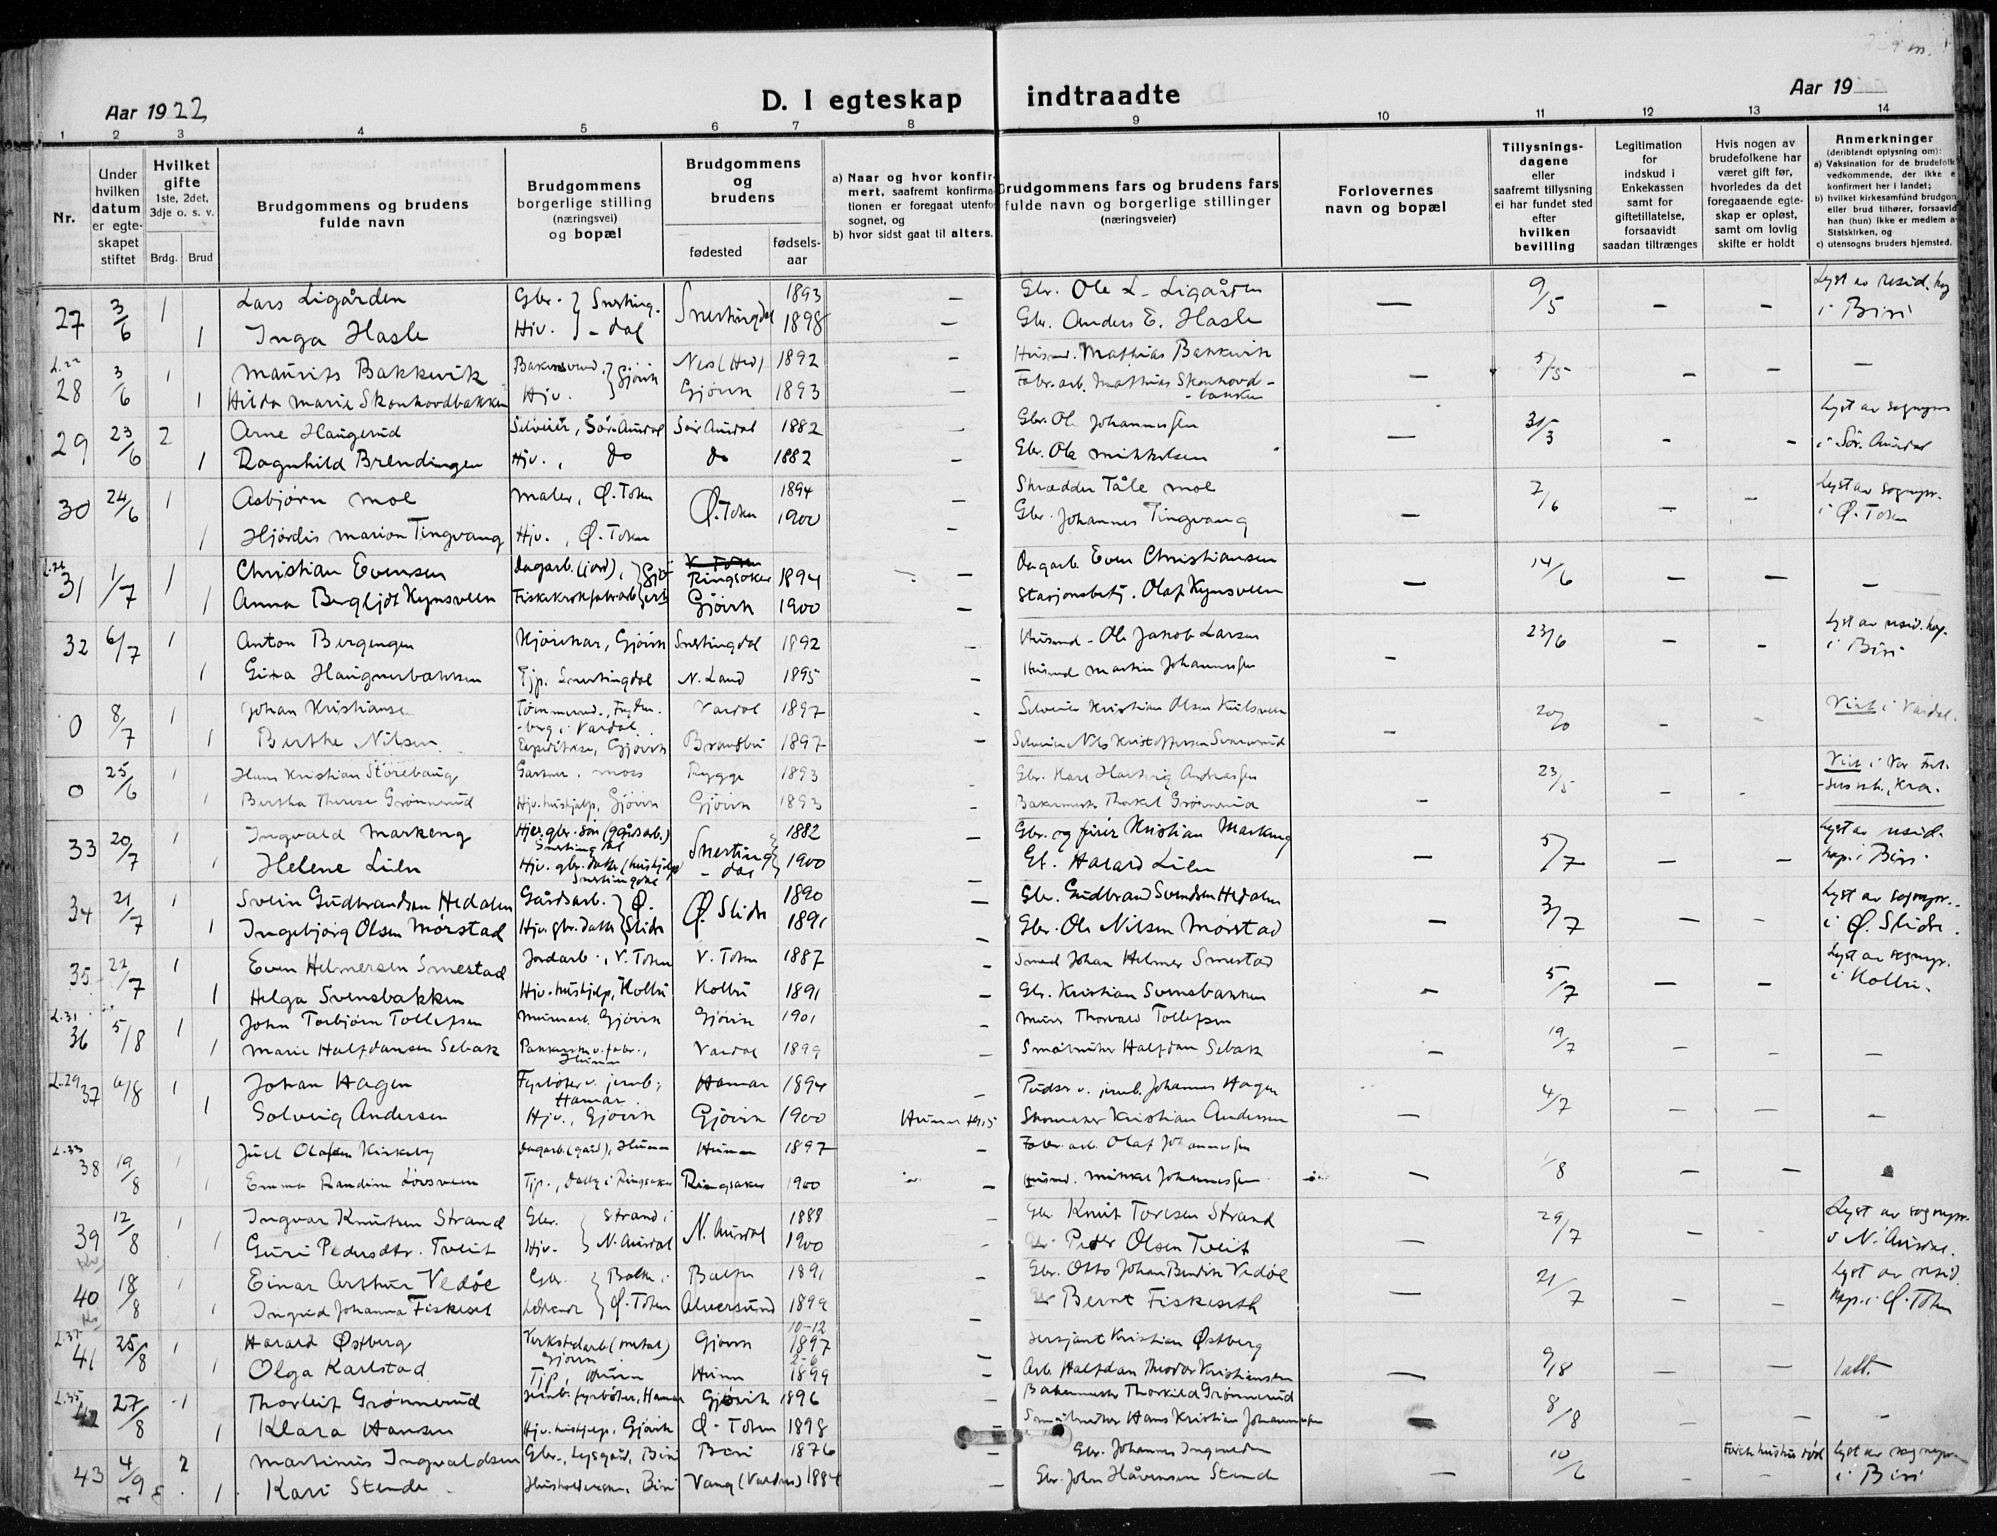 Aar 1922,
D. I egteskap indtraadte
Aar 19
1 2 3 4 5 6 7 8 9 10 11 12 13 14
Nr.
Under hvilken datum er egteskapet stiftet
Hvilket gifte 1ste, 2det, 3dje o. s. v.
Brdg. Brud
Brudgommens og brudens fulde navn
Brudgommens borgerlige stilling (næringsvei) og bopæl
Brudgommens og brudens
fødested
fødsels-aar
a) Naar og hvor konfir-
mert, saafremt konfirma-
tionen er foregaat utenfo
sognet, og
b) hvor sidst gaat til alters.
Brudgommens fars og brudens fars
fulde navn og borgerlige stillinger
(næringsveier)
Forlovernes
navn og bopæl
Tillysnings-
dagene
eller
saafremt tillysning
ei har fundet sted
efter
hvilken
bevilling
Legitimation
for
indskud i
Enkekassen
samt for
giftetillatelse,
forsaavidt
saadan tiltrænges
Hvis nogen av
brudefolkene har
været gift før,
hvorledes da det
foregaaende egte-
skap er opløst,
samt om lovlig
skifte er holdt
Anmerkninger
(deriblandt oplysning om):
a) Vaksination for de brudefolk
vedkommende, der ikke e
konfirmert her i landet;
b) hvilket kirkesamfund brudgom
eller brud tilhører, forsaavid
han (hun) ikke er medlem a
Statskirken, og
c) utensogns bruders hjemsted.
27 3/6 1 Lars Ligården Gbr. Snerting- Snertingdal 1893 — Gbr. Ole L. Ligården — 9/5 — — Lyst av resid. kap
1 Inga Hasle Hjv. -dal 1898 — Gbr. Anders E. Hasle i Biri
28 3/6 1 Maurits Bakkevik Gjøvik Nes (Hed) 1892 — Husmd. Mathias Bakkevik — 5/5 — — —
1 Hilda Marie Skonhovdbakken Hjv. Gjøvik 1893 — Fabr. arb. Mathias Skonhovd-
-bakken
29 23/6 2 Arne Haugerud Selveier, Sør-Aurdal Sør Aurdal 1882 — Gbr. Ole Johannesen — 31/3 — — Lyst av sognepr
1 Ragnhild Brendingen Hjv., do do 1882 — Gbr. Ole Mikkelsen i Sør. Aurdal
30 24/6 1 Asbjørn Moe Maler, Ø. Toten Ø. Toten 1894 — Skrædder Tåle Moe — 7/6 — — Lyst av sognepr.
1 Hjørdis Marion Tingvang Hjv., Ø. Toten 1900 — Gbr. Johannes Tingvang i Ø. Toten
31 1/7 1 Christian Evensen Dagarb. (jord), Ringsaker 1894 — Dagarb. Even Christiansen — 14/6 — — —
1 Anna Bergljot Kynsveen Fiskekrokfabr.arb Gjøvik 1900 — Stasjonsbetj. Olaf Kynsveen
32 6/7 1 Anton Bergengen Gjøvik Snertingdal 1892 Husmd. Ole Jakob Larsen — 23/6 — — Lyst av resid. kap.
1 Tjp. Snertingdal N. Land 1895 Husmd Martin Johannesen i Biri
0 8/7 1 Johan Kristiansen Vardal 1897 — Selveier Kristian Olsen — 20/ — — Viet i Vardal.
-berg i Vardal
1 Berthe Nilsen Gjøvik Brandbu 1897 — Selveier Nils Kristoffersen
0 25/6 1 Hans Kristian Gartner. Moss Rygge 1893 Gbr. Karl Hartvig Andreasen 23/5 — — Viet i Vår Frel-
1 Bertha Therese Grønnerud Hjv. hushjelp, Gjøvik Gjøvik 1893 Bakermester Thorkel Grønnerud — -sers k., Kra.
33 20/7 1 Ingvald Markeng Hjv. gbr. søn (gårdsarb.) Snertingdal Snerting- 1882 — Gbr. og Kristian Markeng — 5/7 — — Lyst av resid.
1 Helene Lien Hjv. gbr. datter (hushjelp) Snertingdal -dal 1900 — Harald Lien kap. i Biri
34 21/7 1 Svein Gudbrandsen Hedalen Gårdsarb. Ø. Ø. Slidre 1890 — Gbr. Gudbrand Svendsen Hedalen — 3/7 — — Lyst av sognepr.
1 Ingebjørg Olsen Mørstad Hjv. gbr. datter Slidre 1891 — Gbr. Ole Nilsen Mørstad i Ø. Slidre.
35 22/7 1 Even Helmersen Smestad Jordarb., V. Toten V. Toten 1887 — Smed Johan Helmer Smestad — 5/7 — — Lyst av sognepr.
1 Helga Svensbakken Hjv. hushjelp, Kolbu Kolbu 1891 — Gbr. Kristian Svensbakken i Kolbu.
L. 31 36 5/8 1 John Torbjørn Tollefsen Murerarb. Gjøvik Gjøvik 1901 — Murer Thorvald Tollefsen — 19/7 — — —
1 Marie Halfdansen Sebak Hunn Vardal 1899 — Småbruker Halfdan Sebak
L. 29 37 6/8 1 Johan Hagen Fyrbøter v. jernb., Hamar Hamar 1894 — Pudser v. jernb. Johannes Hagen — 4/7 — — —
1 Solveig Andersen Hjv., Gjøvik Gjøvik 1900 Hunn 1915 Skomaker Kristian Andersen
L. 33 38 19/8 1 Juel Olafsen Kirkeby Dagarb. (gård), Hunn Hunn 1897 — Fabr. arb. Olaf Johannesen — 1/8 — —
1 Emma Randine Løvsveen Tjp., Ringsaker Ringsaker 1900 — Husmd. Mikkel Johannesen
39 12/8 1 Ingvar Knutsen Strand Gbr. Strand i N. Aurdal 1888 — Gbr Knut Toresen Strand — 29/7 — — Lyst av sognepr.
1 Guri Pedersdtr. Tveit Hjv. N. Aurdal 1900 — Peder Olsen Tveit N. Aurdal.
40 18/8 1 Einar Arthur Vedøe Gbr. Balke i Balke 1891 — Gbr. Otto Johan Vedøe — 21/7 — — Lyst av resid.
1 Ingrid Johanna Fiskeset Ø. Toten Alversund 1899 — Bernt Fiskeseth kap. i Ø. Toten
L. 37 41 25/8 1 Harald Østberg Verkstedarb (metal) Gjøvik Gjøvik 10-12 1897 — Sersjant Kristian Østberg — 9/8 — — 1 att.
1 Olga Karlstad Tjp, Hunn Hunn 2-6 1899 — Arb. Halfdan Theodor Kristiansen
L. 35 42 27/8 1 Thorleif Grønnerud Jernb. fyrbøter, Hamar Gjøvik 1896 — Bakermester Thorkild Grønnerud 8/8 — — —
1 Klara Hansen Hjv. hushjelp, Gjøvik Ø. Toten 1898 Småbruker Hans Kristian Johannesen
43 4/9 2 Martinus Ingvaldsen Gbr., Lysgård, Biri Biri 1876 — Gbr. Johannes — 10/6 — Lyst av sognepr
1 Kari Stende Husholderske, Biri Vang (Valdres) 1884 — Gbr. John Håvensen Stende i Biri